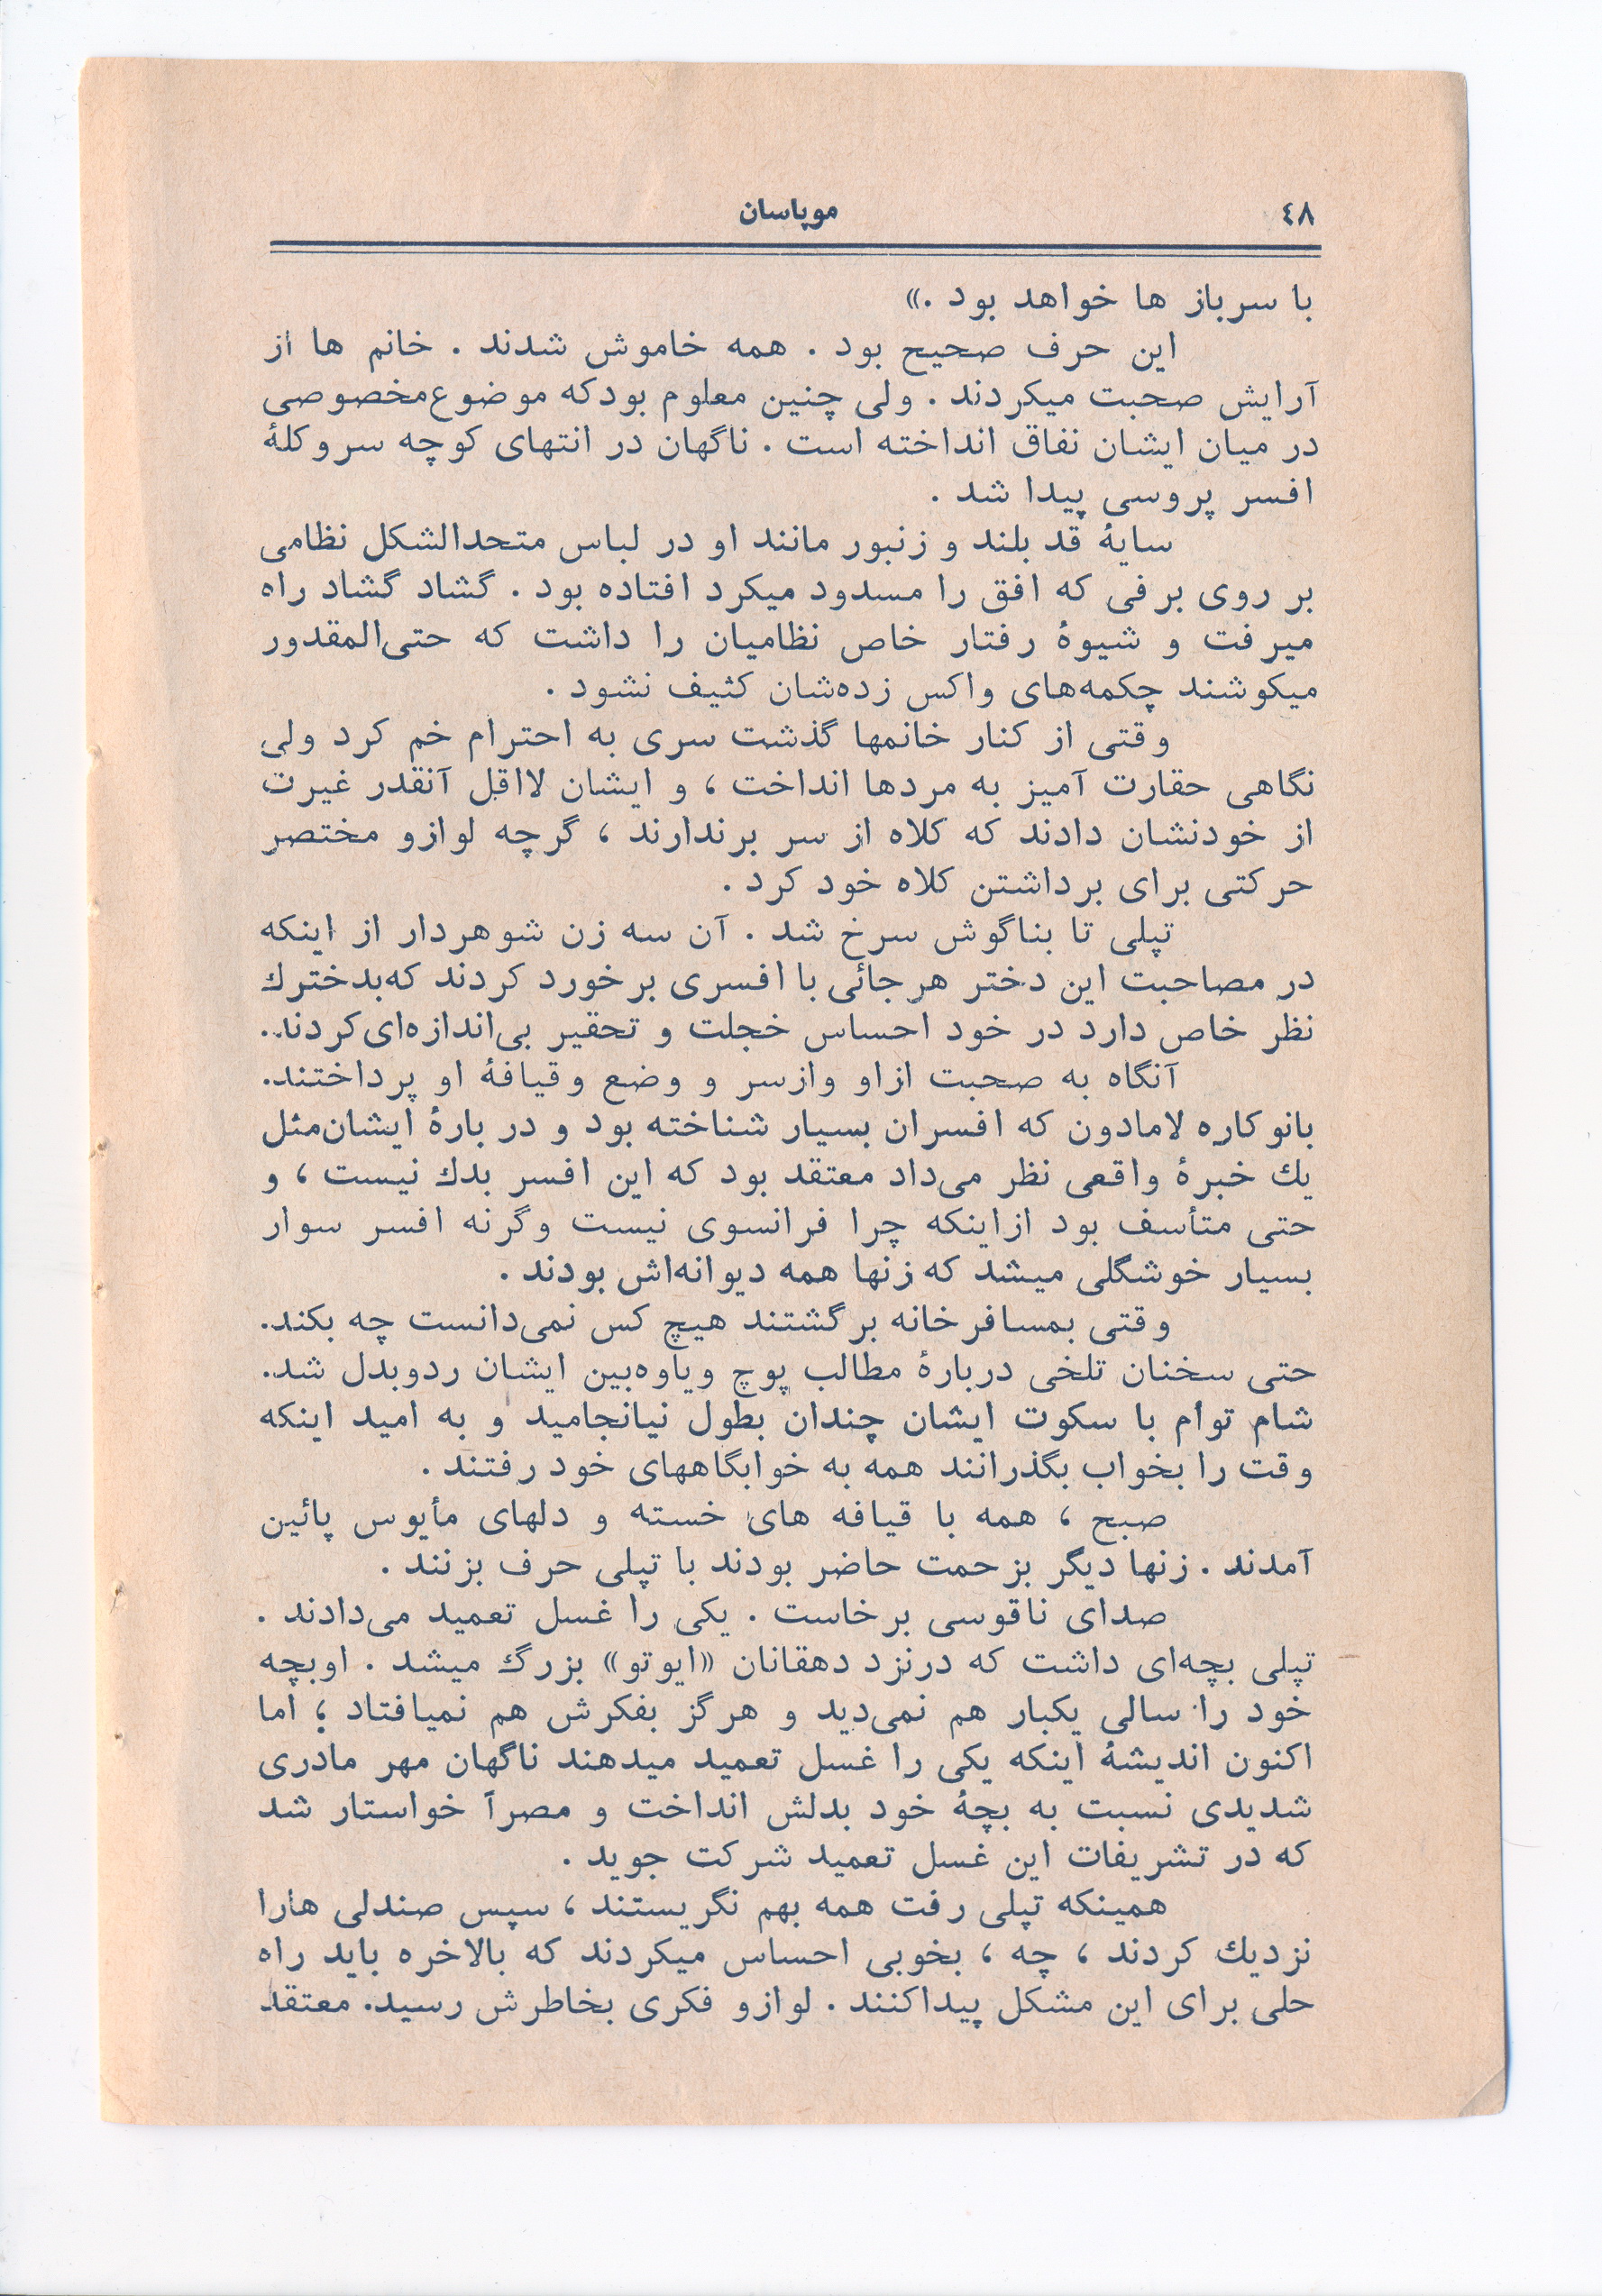 ٤٨
موپاسان
با سرباز ها خواهد بود .»
این حرف صحیح بود . همه خاموش شدند . خانم ها از
آرایش صحبت میکردند . ولی چنین معلوم بودکه موضوع‌مخصوصی
در میان ایشان نفاق انداخته است . ناگهان در انتهای کوچه سروکلهٔ
افسر پروسی پیدا شد .
سایهٔ قد بلند و زنبور مانند او در لباس متحدالشکل نظامی
بر روی برفی که افق را مسدود میکرد افتاده بود . گشاد گشاد راه
میرفت و شیوهٔ رفتار خاص نظامیان را داشت که حتی‌المقدور
میکوشند چکمه‌های واکس زده‌شان کثیف نشود .
وقتی از کنار خانمها گذشت سری به احترام خم کرد ولی
نگاهی حقارت آمیز به مردها انداخت ، و ایشان لااقل آنقدر غیرت
از خودنشان دادند که کلاه از سر برندارند ، گرچه لوازو مختصر
حرکتی برای برداشتن کلاه خود کرد .
تپلی تا بناگوش سرخ شد . آن سه زن شوهردار از اینکه
در مصاحبت این دختر هرجائی با افسری برخورد کردند که‌بدخترك
نظر خاص دارد در خود احساس خجلت و تحقیر بی‌اندازه‌ای‌کردند.
آنگاه به صحبت ازاو وازسر و وضع و قیافهٔ او پرداختند.
بانو کاره لامادون که افسران بسیار شناخته بود و در بارهٔ ایشان‌مثل
یك خبرهٔ واقعی نظر می‌داد معتقد بود که این افسر بدك نیست ، و
حتی متأسف بود ازاینکه چرا فرانسوی نیست وگرنه افسر سوار
بسیار خوشگلی میشد که زنها همه دیوانه‌اش بودند .
وقتی بمسافرخانه برگشتند هیچ کس نمی‌دانست چه بکند.
حتی سخنان تلخی دربارهٔ مطالب پوچ ویاوه‌بین ایشان ردوبدل شد.
شام توأم با سکوت ایشان چندان بطول نیانجامید و به امید اینکه
وقت را بخواب بگذرانند همه به خوابگاههای خود رفتند .
صبح ، همه با قیافه های خسته و دلهای مأیوس پائین
آمدند . زنها دیگر بزحمت حاضر بودند با تپلی حرف بزنند .
صدای ناقوسی برخاست . یکی را غسل تعمید می‌دادند .
تپلی بچه‌ای داشت که درنزد دهقانان «ایوتو» بزرگ میشد . اوبچه
خود را سالی یکبار هم نمی‌دید و هرگز بفکرش هم نمیافتاد ؛ اما
اکنون اندیشهٔ اینکه یکی را غسل تعمید میدهند ناگهان مهر مادری
شدیدی نسبت به بچهٔ خود بدلش انداخت و مصراً خواستار شد
که در تشریفات این غسل تعمید شرکت جوید .
همینکه تپلی رفت همه بهم نگریستند ، سپس صندلی هارا
نزدیك کردند ، چه ، بخوبی احساس میکردند که بالاخره باید راه
حلی برای این مشکل پیداکنند . لوازو فکری بخاطرش رسید. معتقد